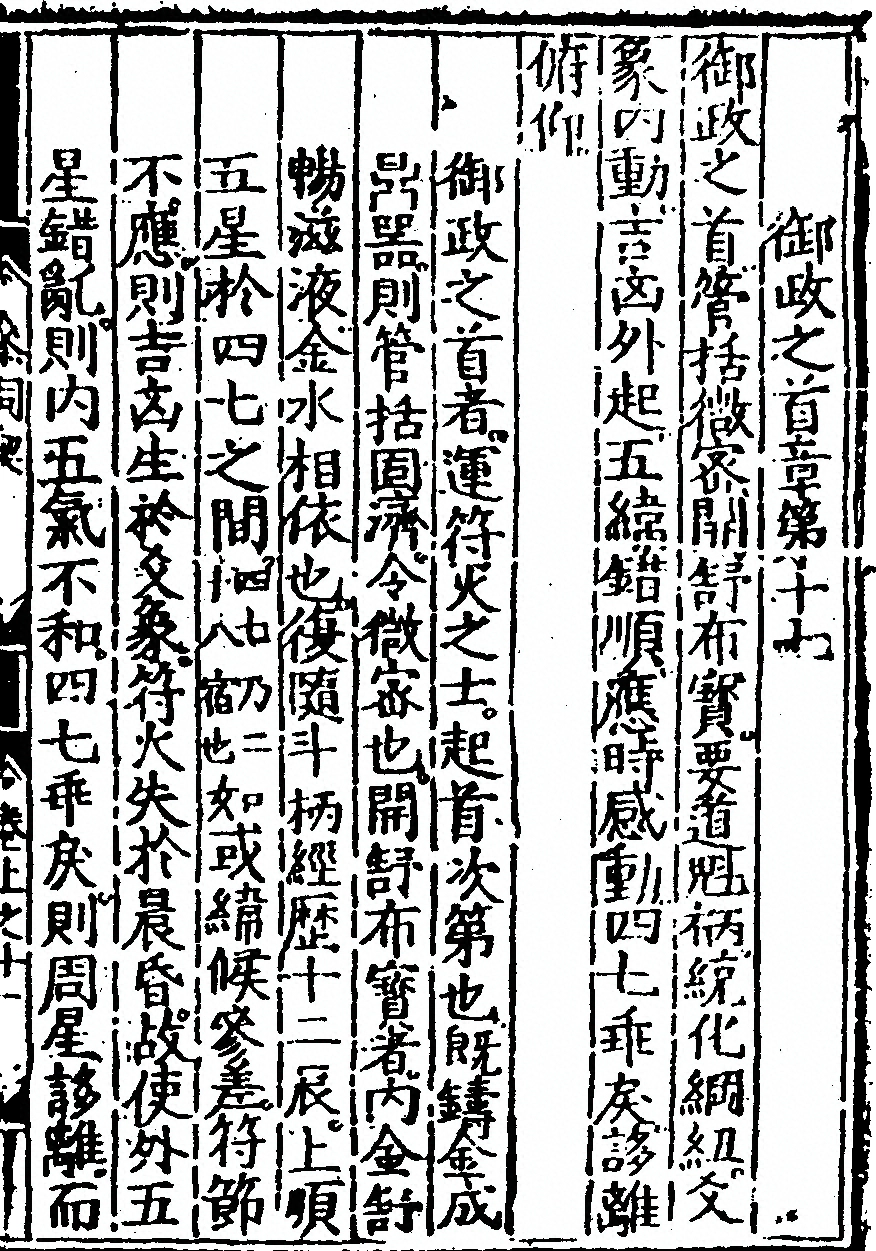 御政之首章第十四
御政之首管括微密開舒布寶要道魁柄統化綱紐爻
象内動吉凶外起五緯錯順應時感動四七乖戾誃離
俯仰
御政之首者運符火之士起首次第也既鑄金成
鼎器則管括固濟令微密也開舒布寶者内金舒
暢滋液金水相依也復隨斗柄經歷十二辰上順
五星於四七之間四七乃二十八宿也如或緯候參差符節
不應則吉凶生於爻象符火失於晨昏故使外五
星錯亂則内五氣不和四七乖戾則周星誃離而
參同契
卷上之十一